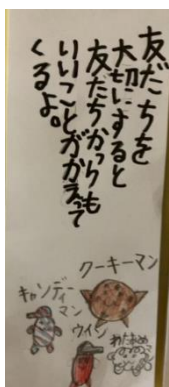 友だちを
大切にすると
友だちかっりも
いいことがかえって
くるよ。
クーキーマン
キャンディ
マン
ウイン
わたあめ